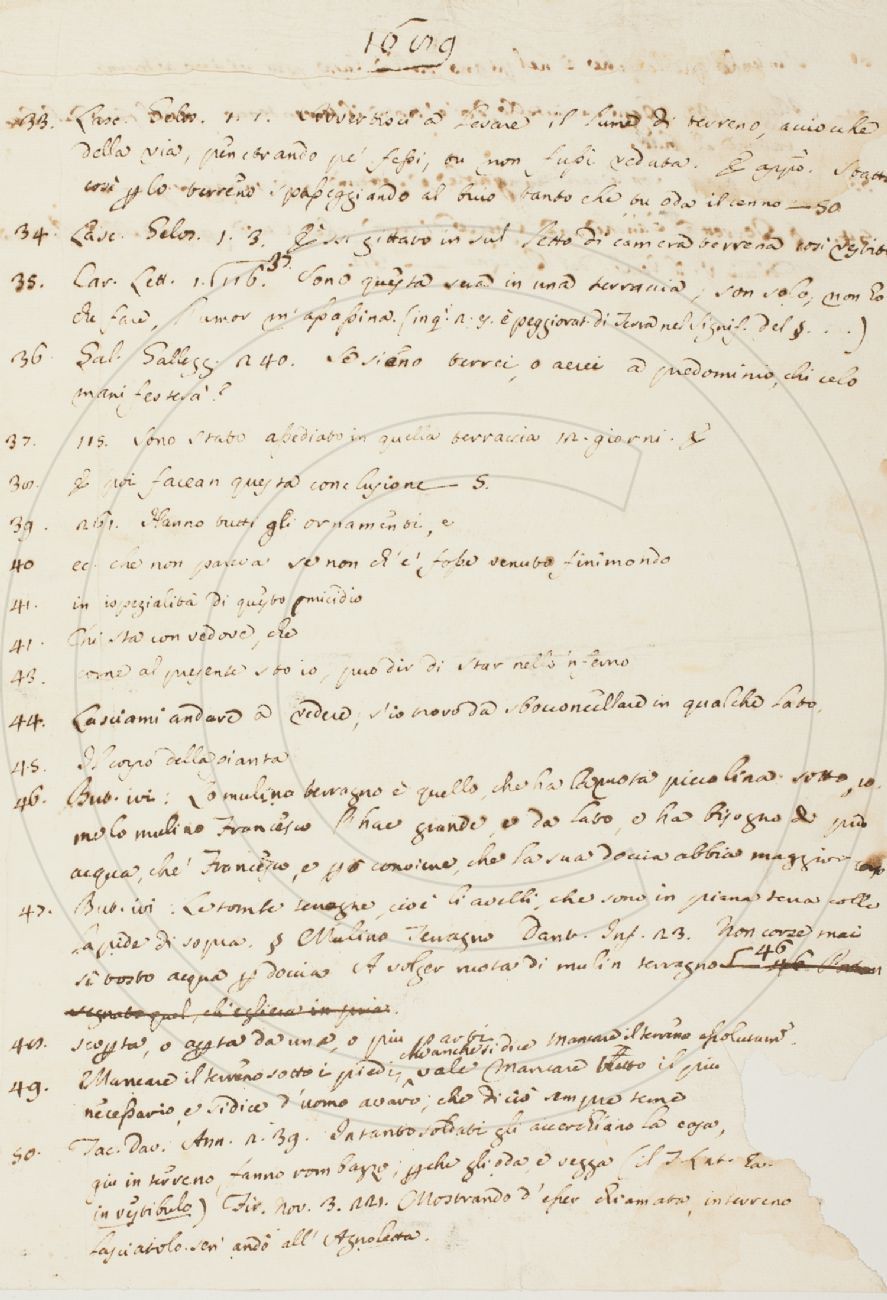 1659
33. Lasc. Gelos. 1. 1. Avvertisci a levare il lume di terreno, acciocchè
della via, penetrando pe' fessi, tu non fussi veduta. E appo. Statti
così p lo terreno spasseggiando al buio tanto che tu oda il cenno — 50
34. Lasc. Gelos. 1. 3. E si gittato in sul letto di camera terrena così vestito
35. Car. Lett. 1. 116. 37 Sono questa sera in una terraccia, son solo, non ho
che fare, l'umor m'assassina. (inq. è peggiorat. di Terra nel signif. del §. ...)
36. Gal. Sallegg. 240. Se sieno terrei, o aerei a predominio, chi celo
manifesterà?
37. 115. Sono stato assediato in quella terraccia 12. giorni. E
38. E poi facean questa conclusione — 5.
39. 261. Hanno tutti gli ornamenti, e
40 ec. che non pareva se non ch'e' fosse venuto finimondo
41. in ispezialità di questo omicidio
41. Chi sta con vedove, che
43. come al presente sto io, può dir di star nello 'nferno
44. Lasciami andare a vedere, s'io trovo da sbocconcellare in qualche lato.
45. Il corpo della pianta
46. But. ivi: Lo mulino terragno è quello, che ha la ruota piccolina sotto, co-
me lo mulino Francesco l'hae grande, e da lato, e ha bisogno di più
acqua, che' Francesco, e pò conviene, che la sua doccia abbia maggior
47. But. ivi: Le tombe terragne, cioè li avelli, che sono in piana terra colle
lapide di sopra. § Mulino Terragno Dant. Inf. 23. Non corse mai
sì tosto acqua p doccia A volger ruota di mulin terragno 46
segnato quel, ch'egliera in pria.
48. scopta, o apta da una, o più parti
49. Mancare il terreno sotto i piedi, che anche si dice mancare il terreno assolutam. vale Mancare tutto il più
necessario, e si dice d'uomo avaro, che di ciò sempre teme
50. Tac. Dav. Ann. 2. 39. Intanto soldati gli accerchiano la casa,
giù in terreno, fanno rombazzo; pche gli oda, e vegga (il T. Lat. ha
in vestibulo) Fir. Nov. 3. 221. Mostrando d'esser chiamata, in terreno
lasciatolo, seri andò all' Agnoletta.